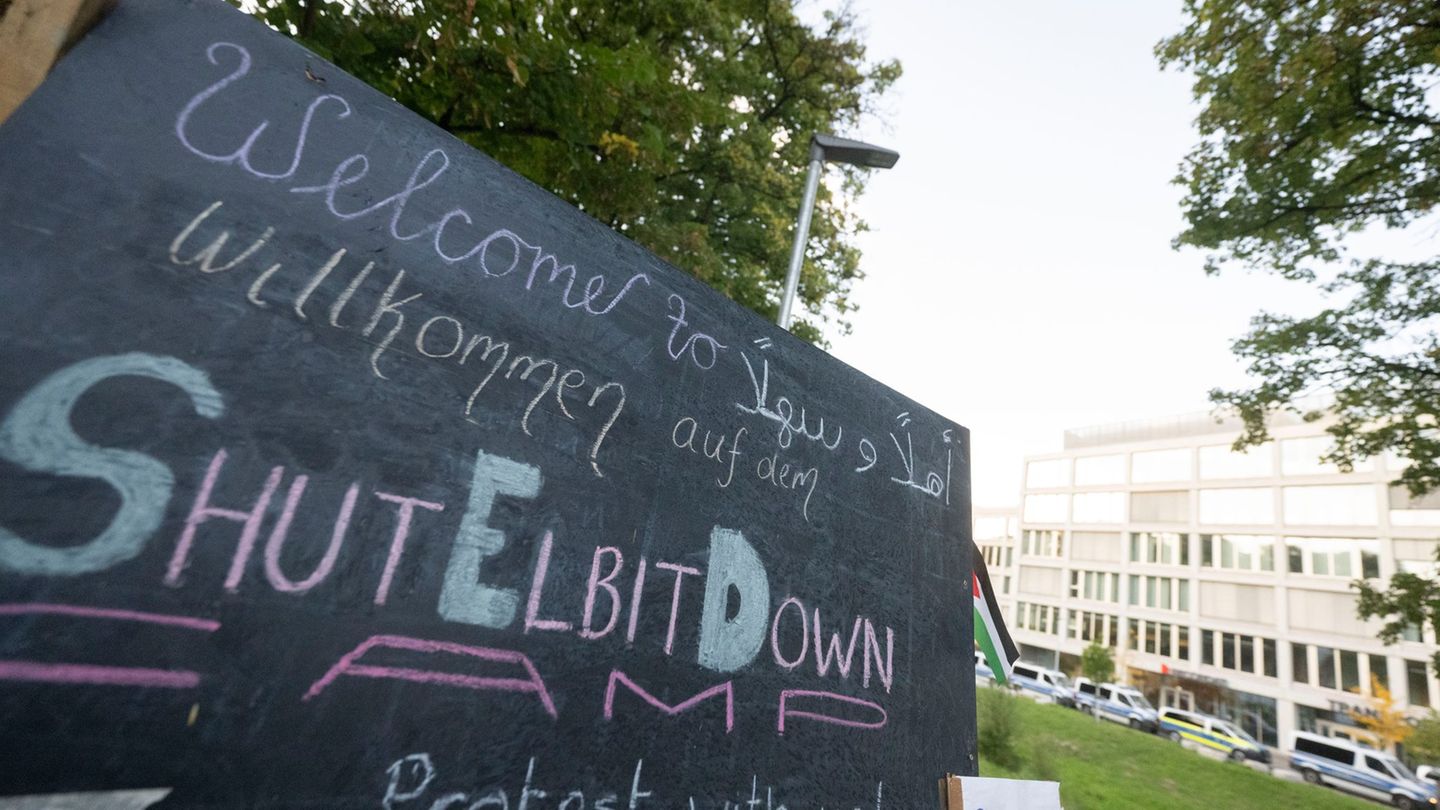 Welcome to
أهلاً و سهلاً
Willkommen auf dem
SHUTELBITDOWN
CAMP
Protest with